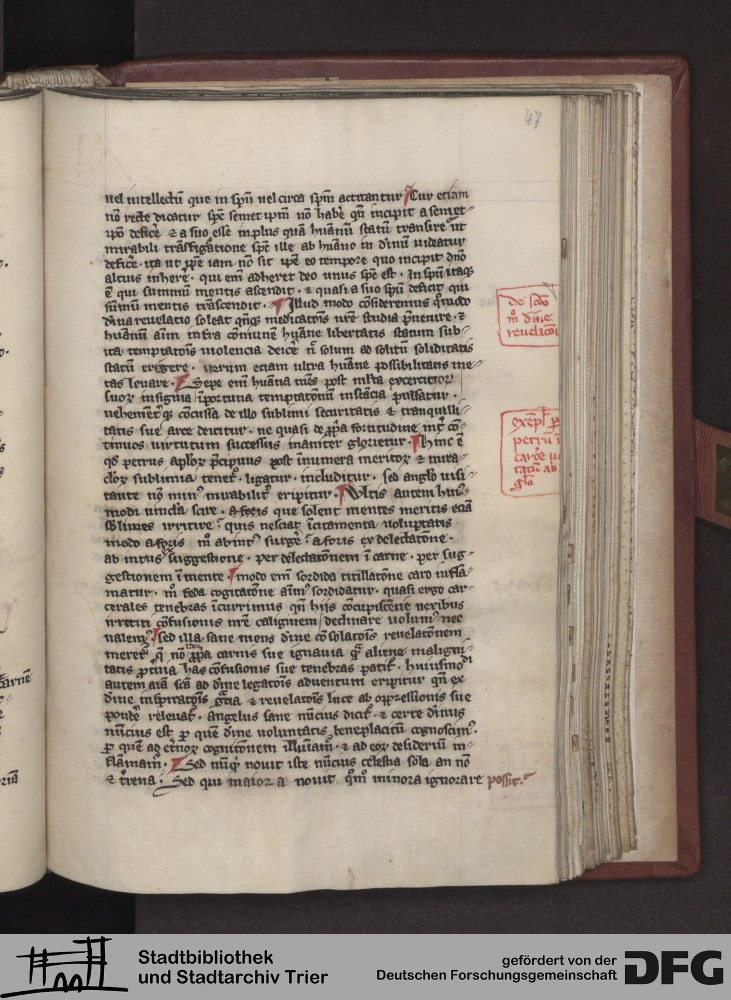 47
uel intellectū que in spū uel circa spm̄ actitantur Cur etiam
nō recte dicatur spc̄ semet ipm̄ nō hab'e qn̄ incipit a semet-
ipō defic'e ⁊ a suo esse in plus quā huānū statū transire ut
mirabili trāsfiguratione spc̄ ille ab huāno in diuinū uideatur
defic'e . ita ut ip̄e iam nō sit ip̄e eo tempore quo incipit dn̄o
altius inher'e . qui em̄ adheret deo unus spc̄ est . In spū itaq3
ē qui summū mentis ascendit . ⁊ quasi a suo spū deficit qui
sūmū mentis trāscendit . Illud modo cōsideremus qm̄odo
diuina reuelatio soleat qn̄q3 medicatōis nr̄e studia p̄uenire . ⁊
huānū aīm infra cōmunē huāne libertatis statum sub-
ita temptatōnis uiolencia deic'e n̄ solum ad solitū soliditatis
statū erigere . uerum etiam ultra huāne possibilitatis me-
tas leuare . Sepe em̄ huāna mēs post mlta exercitior
suor insignia īportuna temptatōnū instācia pulsatur .
uehement'q3 cōcussa de illo sublimi securitatis ⁊ tranquilli-
tatis sue arce deicitur . ne quasi de ꝓpa fortitudine int' cō-
tinuos uirtutum successus inaniter glorietur . hinc ē
qd petrus aplor p̄cipuus post innumera meritor ⁊ mira-
clor sublimia tenet' . ligatur . includitur . sed anglo uisi-
tante nō min' mirabilit' eripitur . Vultis autem hui'-
modi uincla scire . a foris que solent mentes meritis etiā
sblimes irritire quis nesciat īcitamenta uoluptatis
modo a foris m̄ abint' surg'e a foris ex delectatōne .
ab intus suggestione . per delectatōnem ī carne . per sug-
gestionem ī mente . modo em̄ sordida titillatōne caro infla-
matur . m̄ feda cogitatōne aīm' sordidatur . quasi ergo car-
cerales tenebras īcurrimus qn̄ hijs cōcupiscēcie nexibus
irretiti cōfusionis nr̄e caliginem declinare uolum' nec
ualem' . sed illa sane mens diuine cōsolatōis reuelatōnem
meret' q̄ nō ꝓpa carnis sue ignauia q̄ aliene maligni-
tatis ꝓteruia has cōfusionis sue tenebras patit' . huiusmodi
autem aīa scā ad diuine legatōis aduentum eripitur qn̄ ex
diuine inspiratōis grā ⁊ reuelatōis luce ab oppressionis sue
pond'e releuat' . angelus sane nūcius dicit' . ⁊ certe diuinus
nūcius est p quē diuine uoluntatis beneplacitū cognoscim' .
p quē ad et'nor cognitōnem illūinam' . ⁊ ad eor desideriū in-
flāmam' . Sed nūq̄ nouit iste nūcius celestia sola an nō
⁊ t'rena . Sed qui maiora nouit qm̄o minora ignorare possit .
de
m̄ diuine
reuelacōi
exēpl' p
petrū ī
carc'e
ab
glo
Stadtbibliothek
und Stadtarchiv Trier
gefördert von der
Deutschen Forschungsgemeinschaft
DFG